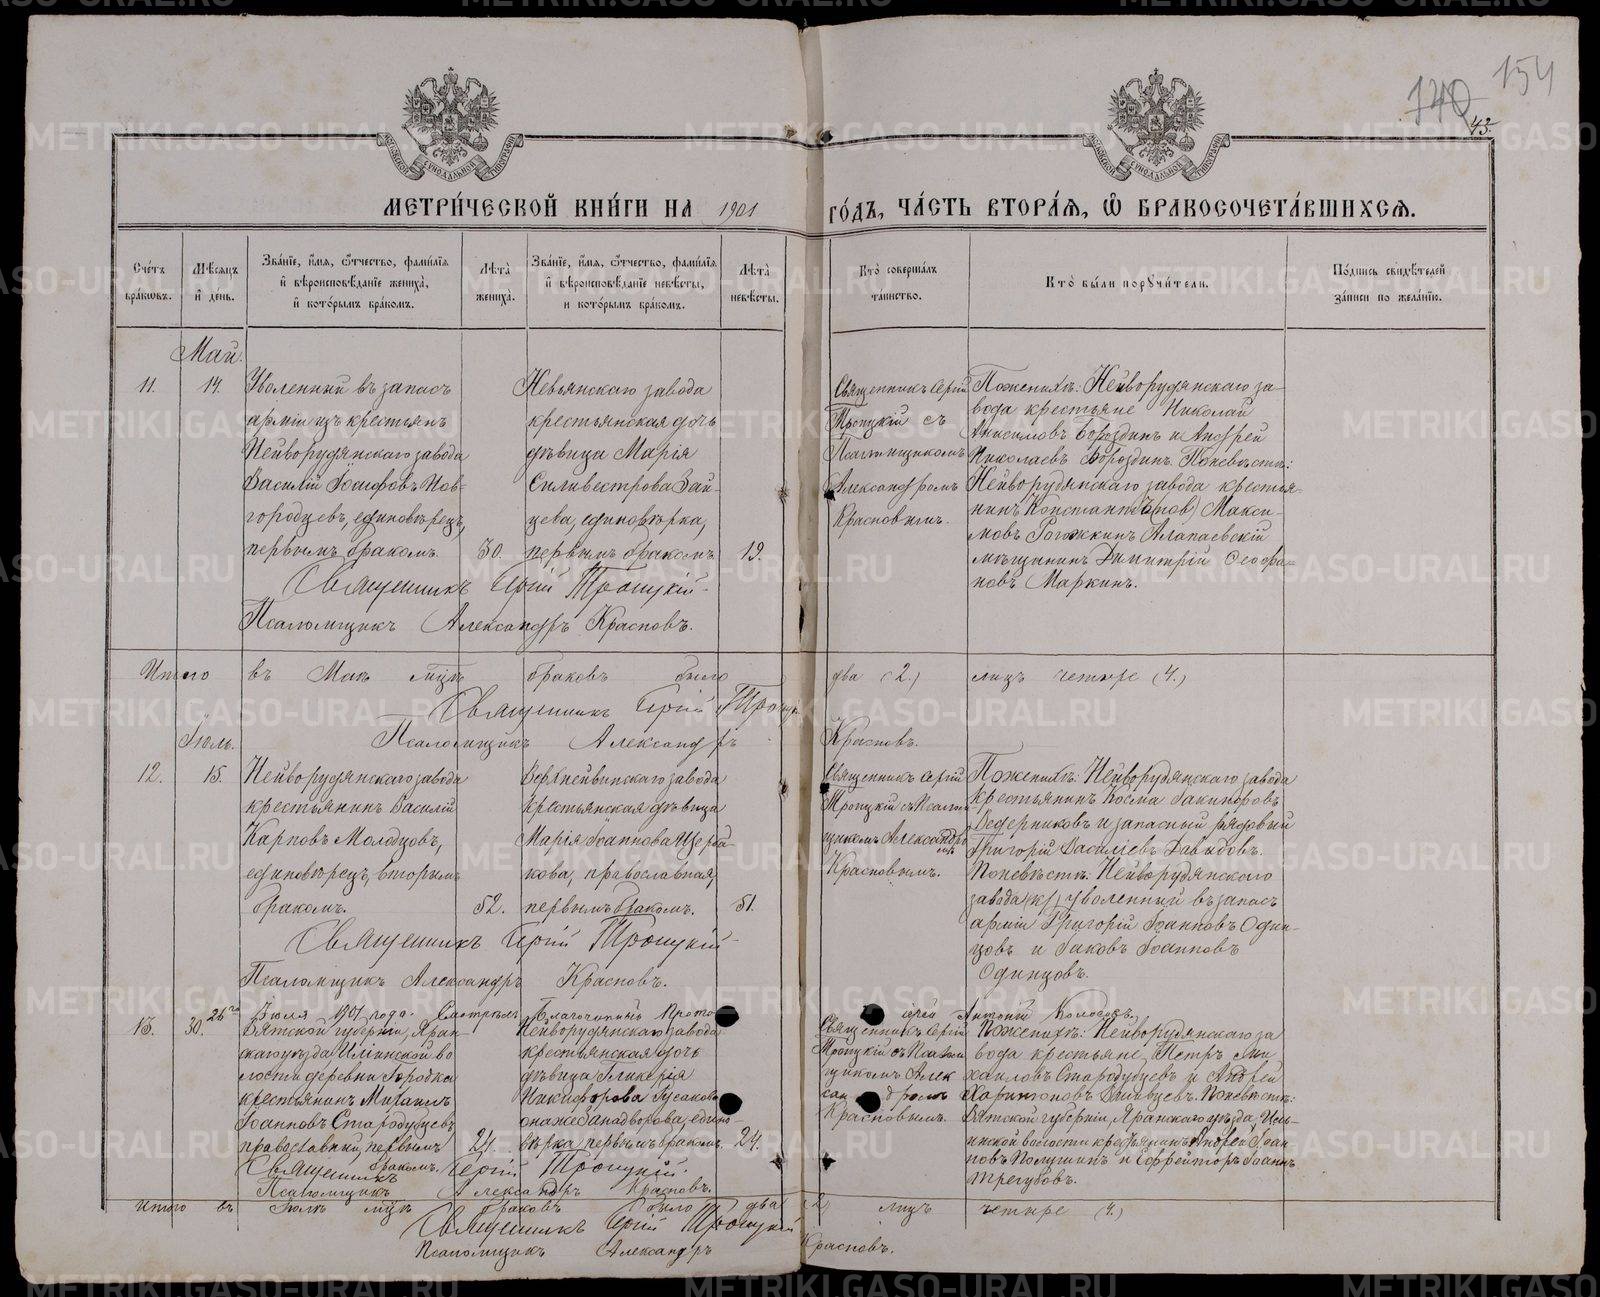 154
140
43.
МЕТРИ́ЧЕСКОЙ КНИ́ГИ НА 1901 ГО́ДЪ, ЧА́СТЬ ВТОРА́Я, Ѽ БРАКОСОЧЕТА́ВШИХСѦ.
Сче́тъ бра́кѡвъ.
Мѣ́сяцъ и҆ де́нь.
Зва́нїе, и҆́мя, ѻ҆́тчество, фами́лїя и҆ вѣроисповѣ́данїе жениха̀, и҆ кото́рымъ бра́комъ.
Лѣта̀ жениха̀.
Зва́нїе, и҆́мя, ѻ҆́тчество, фами́лїя и҆ вѣроисповѣ́данїе невѣ́сты, и кото́рымъ бра́комъ.
Лѣта̀ невѣ́сты.
Кто̀ соверша́лъ таинство.
Кто̀ бы́ли порꙋчи́тели.
По́дпись свидѣ́телей за́писи по жела́нїю.
Май.
11. 14.
Уволенный въ запасъ
арміи изъ крестьянъ
Нейворудянскаго завода
Василій Іосифовъ Нов-
городцевъ, единовѣрецъ,
первымъ бракомъ. 30.
Невьянскаго завода
крестьянская дочь
дѣвица Марія
Силивестрова Зай-
цева, единовѣрка,
первымъ бракомъ 19.
Священникъ Сергій
Троицкій съ
Псаломщикомъ
Александромъ
Красновымъ.
По женихѣ: Нейворудянскаго за-
вода крестьяне Николай
Анисимовъ Бороздинъ и Андрей
Николаевъ Бороздинъ. По невѣстѣ:
Нейворудянскаго завода крестья-
нинъ Константинъ Макси-
мовъ Рогожкинъ Алапаевскій
мѣщанинъ Димитрій Феофа-
новъ Маркинъ.
Священникъ Сергій Троицкій.
Псаломщикъ Александръ Красновъ.
Итого въ Маѣ м-цѣ браковъ было два (2.) лицъ четыре (4.)
Священникъ Сергій Троицк
Псаломщикъ Александръ Красновъ.
Іюль.
12. 15.
Нейворудянскаго завода
крестьянинъ Василій
Карповъ Молодцовъ,
единовѣрецъ, вторымъ
бракомъ. 52.
Верхнейвинскаго завода
крестьянская дѣвица
Марія Іоаннова Щерба-
кова, православная,
первымъ бракомъ. 51.
Священникъ Сергій
Троицкій съ Псалом
щикомъ Александро
мъ
Красновымъ.
По женихѣ: Нейворудянскаго завода
крестьянинъ Косма Іакиноровъ
Ведерниковъ и запасный рядовый
Григорій Василіевъ Давыдовъ.
По невѣстѣ: Нейворудянскаго
завода уволенный въ запасъ
арміи Григорій Іоанновъ Один-
цовъ и Іаковъ Іоанновъ
Одинцовъ.
Священникъ Сергій Троицкій.
Псаломщикъ Александръ Красновъ.
26го Іюля 1901 года. Смотрѣлъ Благочинный Прото іерей Антоній Колосовъ.
13. 30.
Вятской губерніи, Яран-
скаго уѣзда Илiинской во
лости деревни Городка
крестьянинъ Михаилъ
Іоанновъ Стародубцевъ
православный, первымъ
бракомъ. 24.
Нейворудянскаго завода
крестьянская дочь
дѣвица Гликерія
Никифорова Гусакова
она же Западворова, едино-
вѣрка, первымъ бракомъ. 24.
Священникъ Сергій
Троицкій съ Псалом
щикомъ Алек
сандромъ
Красновымъ.
По женихѣ: Нейворудянскаго за
вода крестьяне, Петръ Ми-
хаиловъ Стародубцевъ и Андрей
Харитоновъ Пивцевъ. По невѣстѣ:
Вятской губерніи, Яранскаго уѣзда, Иль-
инской волости крестьянинъ Андрей Іоан-
новъ Полушинъ и Ефрейторъ Іоаннъ
Трегубовъ.
Священникъ Сергій Троицкій.
Псаломщикъ Александръ Красновъ.
Итого въ Іюлѣ м-цѣ браковъ было два (2) лицъ четыре (4.)
Священникъ Сергій Троицкій
Псаломщикъ Александръ Красновъ.
METRIKI.GASO-URAL.RU